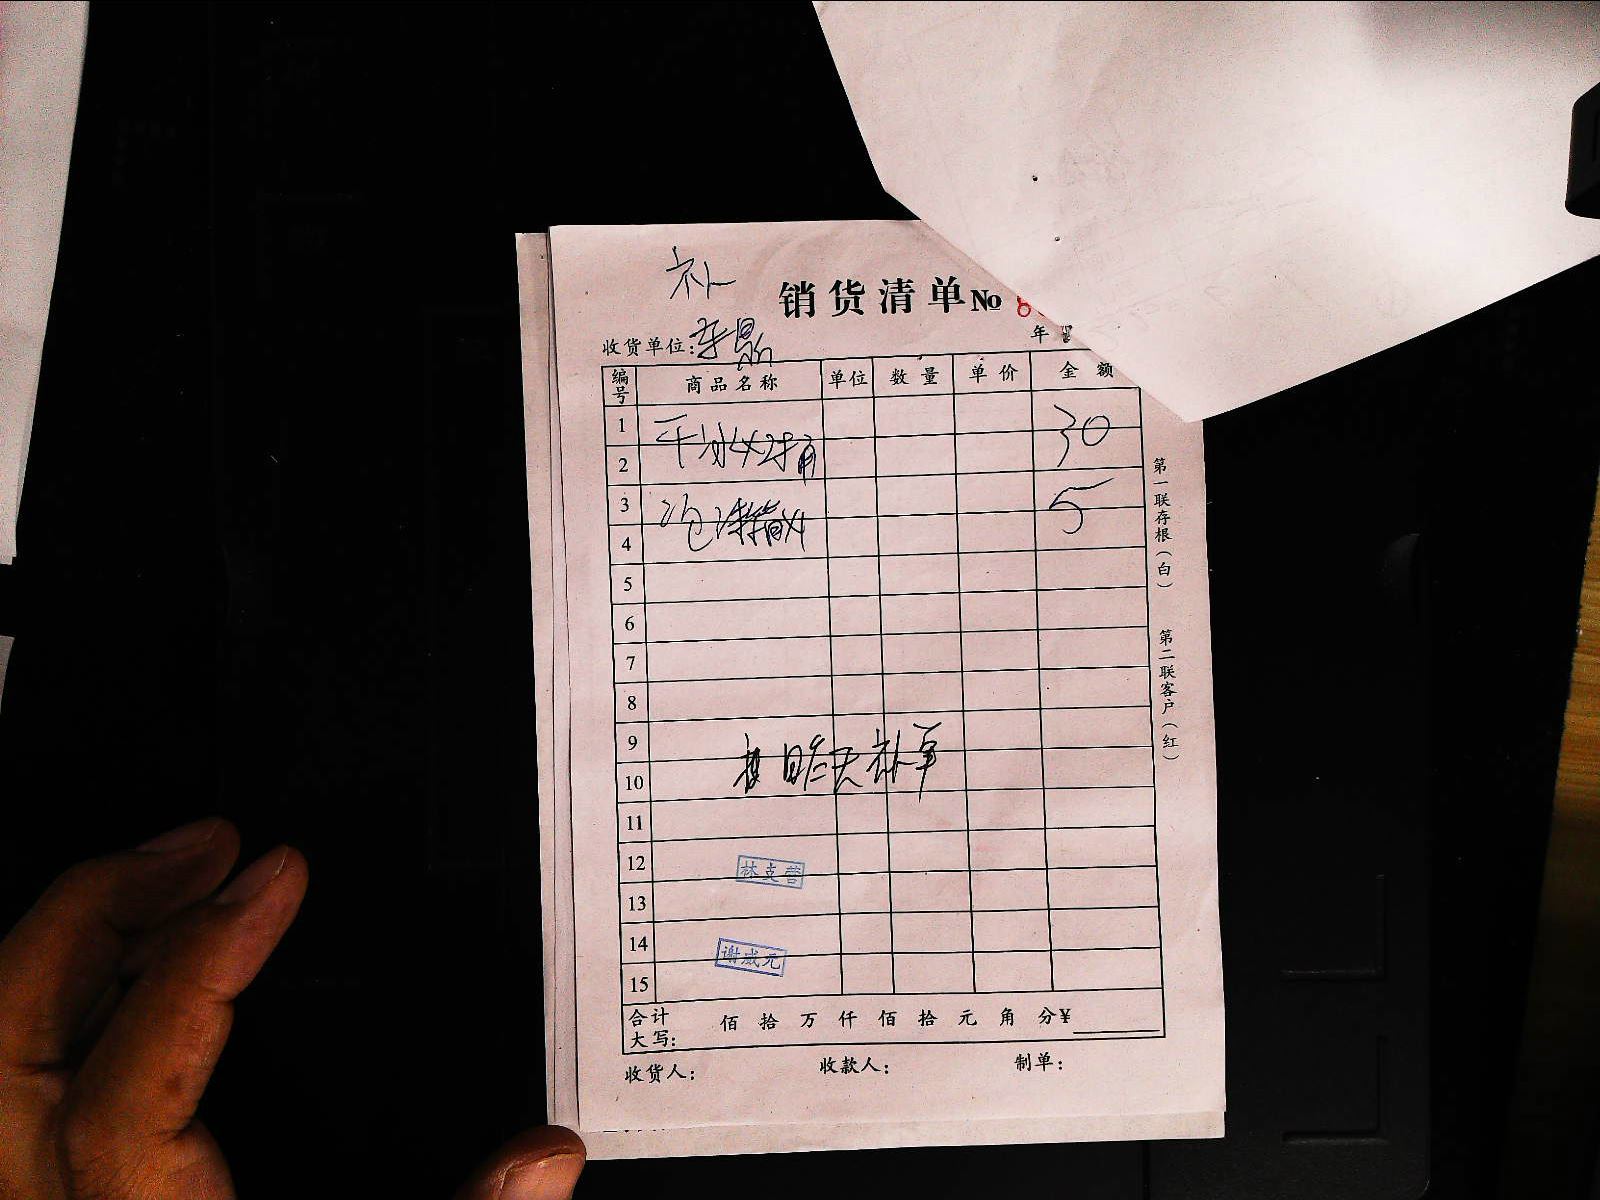 补
销货清单 № 8
收货单位:
年
编号 商品名称 单位 数量 单价 金额
1 30
2
3 5
4
5
6
7
8
9
10 昨天补单
11
12 林支营
13
14 谢成元
15
合计大写: 佰 拾 万 仟 佰 拾 元 角 分 ¥
收货人: 收款人: 制单:
第一联存根(白)
第二联客户(红)